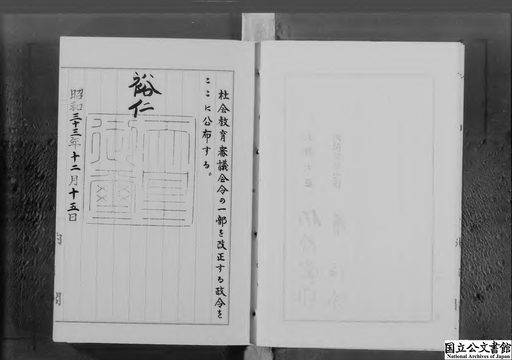 社会教育審議会令の一部を改正する政令を
ここに公布する。
裕仁
天皇御璽
昭和三十三年十二月十五日
内閣
国立公文書館
National Archives of Japan